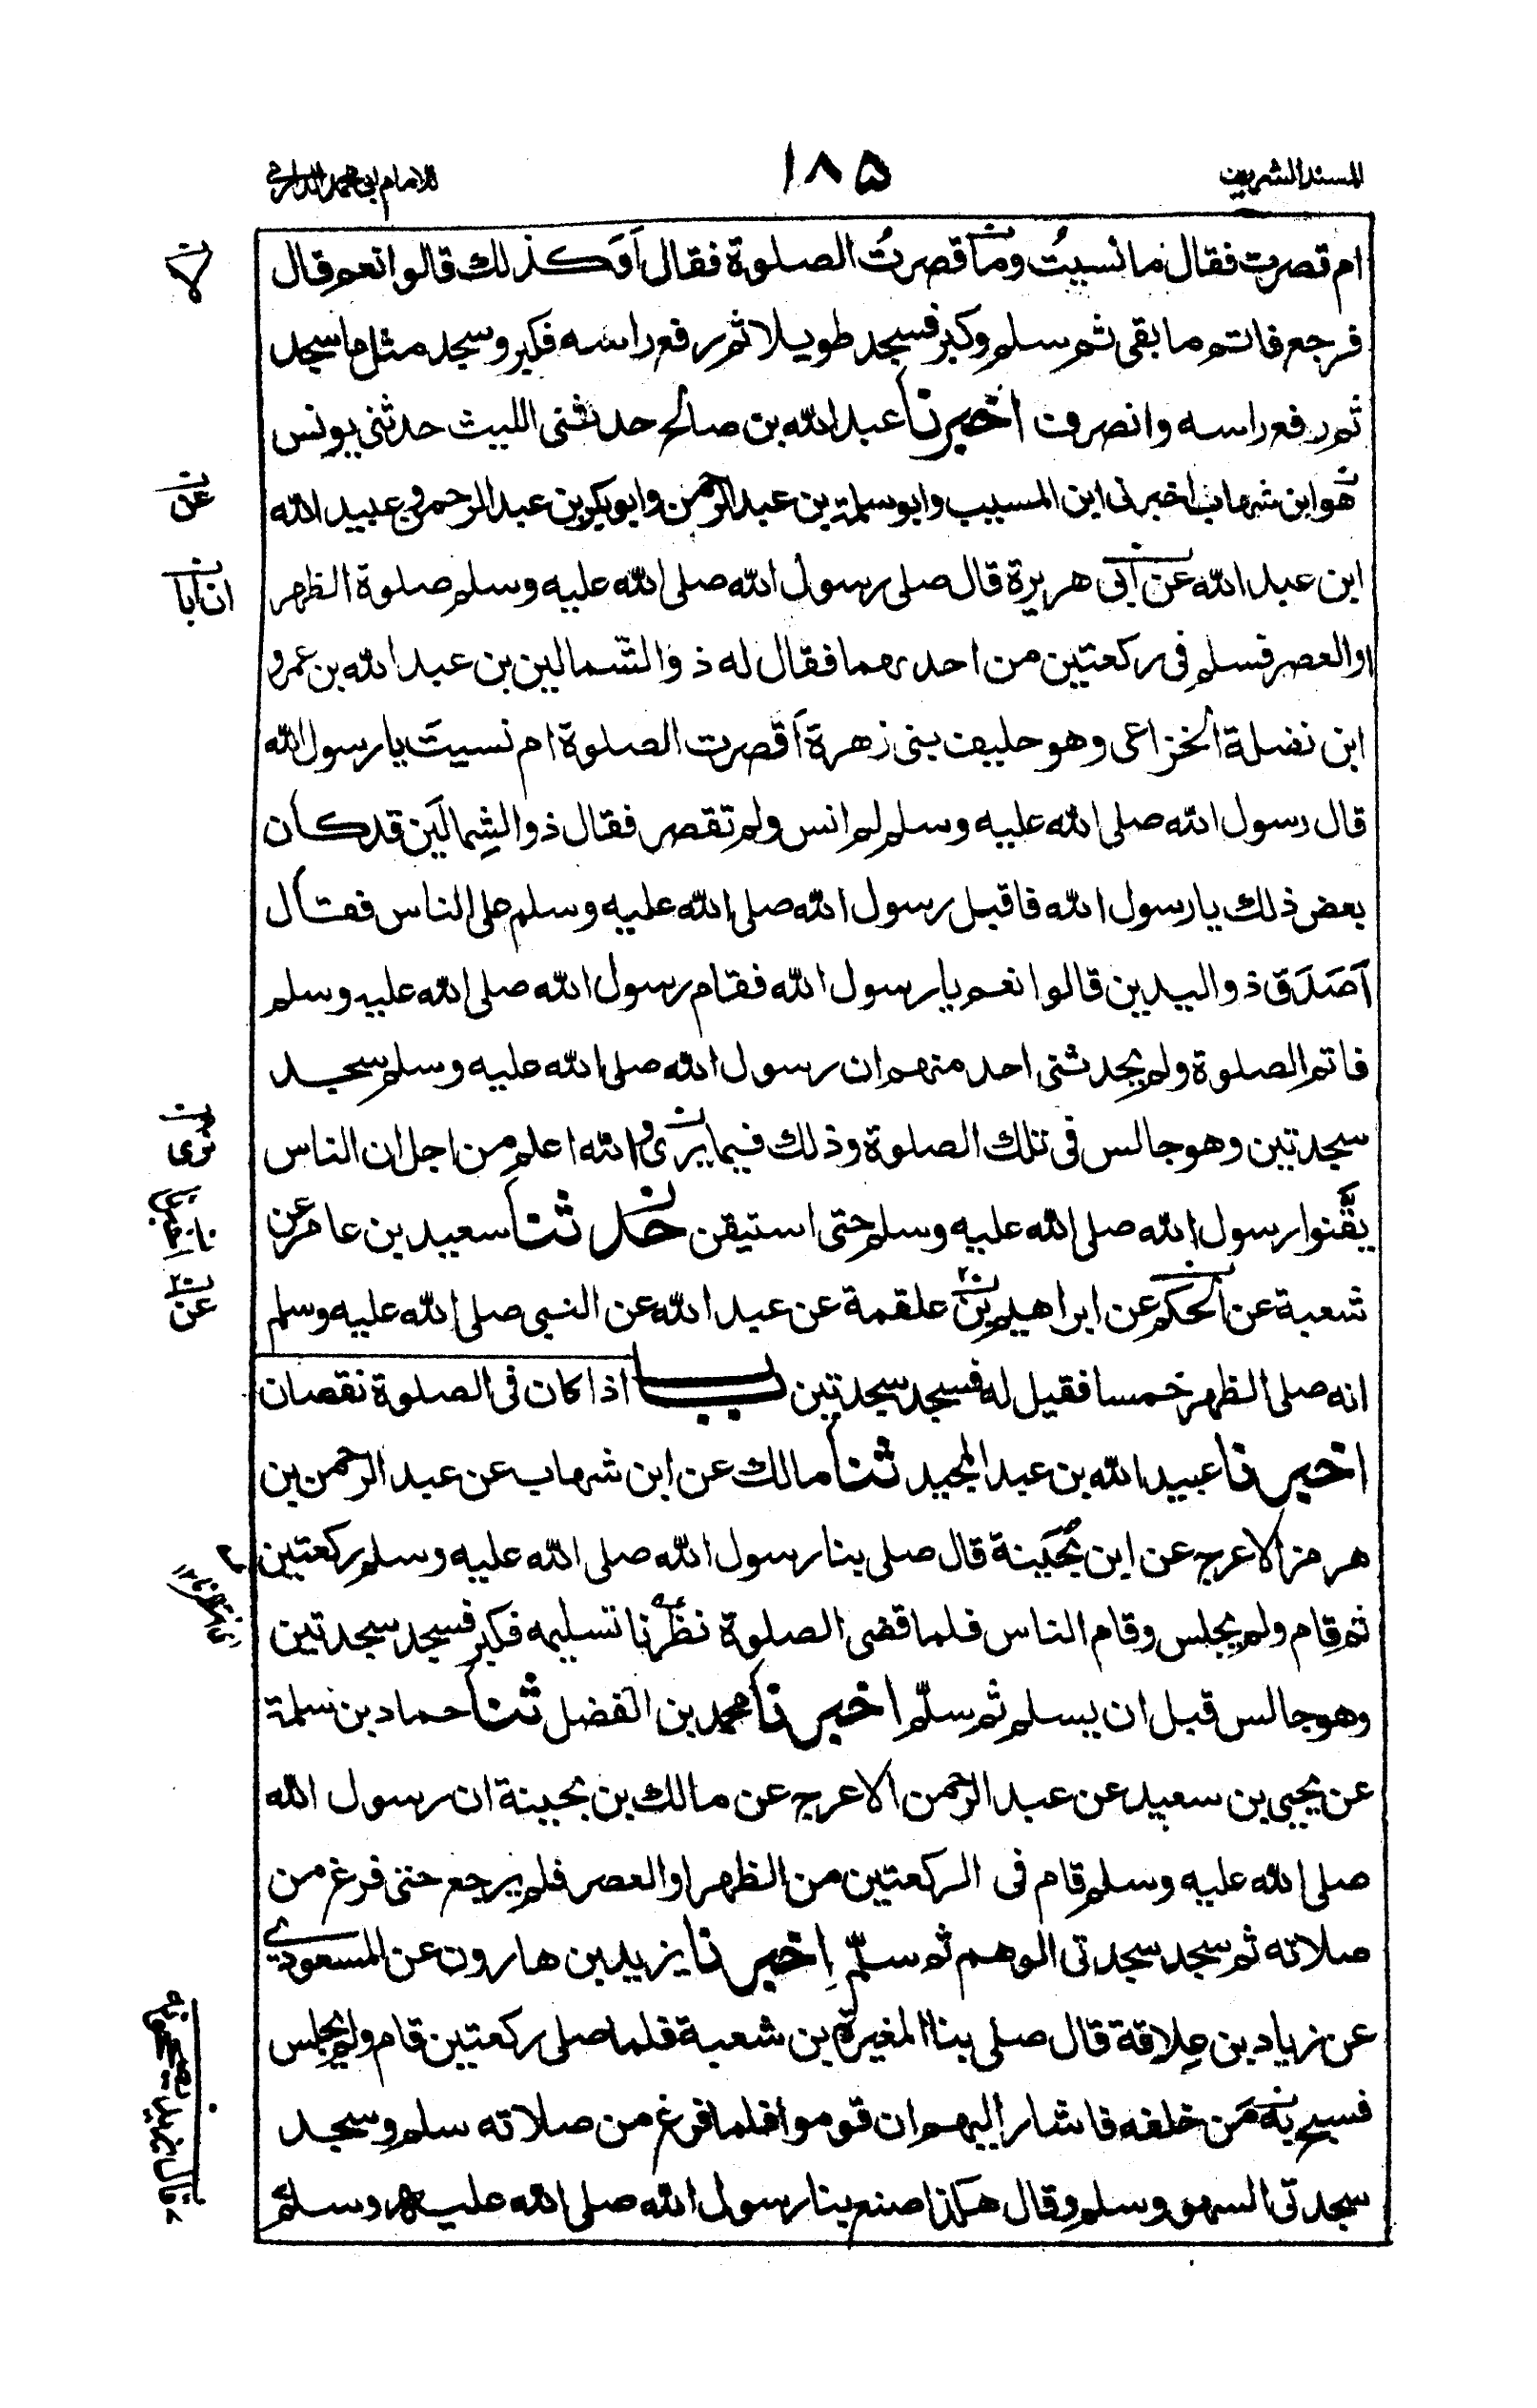 المسند الشريف ١٨٥ للامام ابی محمد الدارمی
ام قصرت فقال ما نسيتُ وما قصرت الصلوة فقال أوَكذلك قالوا نعم قال
لا
فرجع فاتم ما بقی ثم سلم وكبر فسجد طويلا ثم رفع راسه فكبر وسجد مثل ما سجد
ثم رفع راسه وانصرف اخبرنا عبد الله بن صالح حدثنی الليث حدثنی يونس
هو ابن شهاب اخبرنی ابن المسيب وابو سلمة بن عبد الرحمن وابو بكر بن عبد الرحمن وعبيد الله
عن
ابن عبد الله عن ابی هريرة قال صلی رسول الله صلی الله عليه وسلم صلوة الظهر
ان ابا
او العصر فسلم فی ركعتين من احدىهما فقال له ذو الشمالين بن عبد الله بن عمرو
ابن نضلة الخزاعی وهو حليف بنی زهرة أقصرت الصلوة ام نسيتَ يا رسول الله
قال رسول الله صلی الله عليه وسلم لم انس ولم تقصر فقال ذو الشِمالَين قد كان
بعض ذلك يا رسول الله فاقبل رسول الله صلی الله عليه وسلم علی الناس فقال
أصَدَق ذو اليدين قالوا نعم يا رسول الله فقام رسول الله صلی الله عليه وسلم
فاتم الصلوة ولم يحدثنی احد منهم ان رسول الله صلی الله عليه وسلم سجد
سجدتين وهو جالس فی تلك الصلوة وذلك فيما يرى والله اعلم من اجل ان الناس
نری
يقَّنوا رسول الله صلی الله عليه وسلم حتی استيقن حدثنا سعيد بن عامر عن
شعبة عن الحكم عن ابراهيم بن علقمة عن عبد الله عن النبی صلی الله عليه وسلم
عن
انه صلی الظهر خمسا فقيل له فسجد سجدتين باب اذا كان فی الصلوة نقصان
اخبرنا عبيد الله بن عبد المجيد ثنا مالك عن ابن شهاب عن عبد الرحمن بن
هرمز الاعرج عن ابن بُحَينة قال صلی بنا رسول الله صلی الله عليه وسلم ركعتين
ثم قام ولم يجلس وقام الناس فلما قضی الصلوة نظرنا تسليمه فكبر فسجد سجدتين
وهو جالس قبل ان يسلم ثم سلّم اخبرنا محمد بن الفضل ثنا حماد بن سلمة
عن يحيی بن سعيد عن عبد الرحمن الاعرج عن مالك بن بحينة ان رسول الله
صلی الله عليه وسلم قام فی الركعتين من الظهر او العصر فلم يرجع حتی فرغ من
صلاته ثم سجد سجدتی الوهم ثم سلّم اخبرنا يزيد بن هارون عن المسعودی
عن زياد بن عِلاقة قال صلی بنا المغيرة بن شعبة فلما صلی ركعتين قام ولم يجلس
فسبح به مَن خلفه فاشار اليهم ان قوموا فلما فرغ من صلاته سلم وسجد
سجدتی السهو وسلم وقال هكذا صنع بنا رسول الله صلی الله عليه وسلم